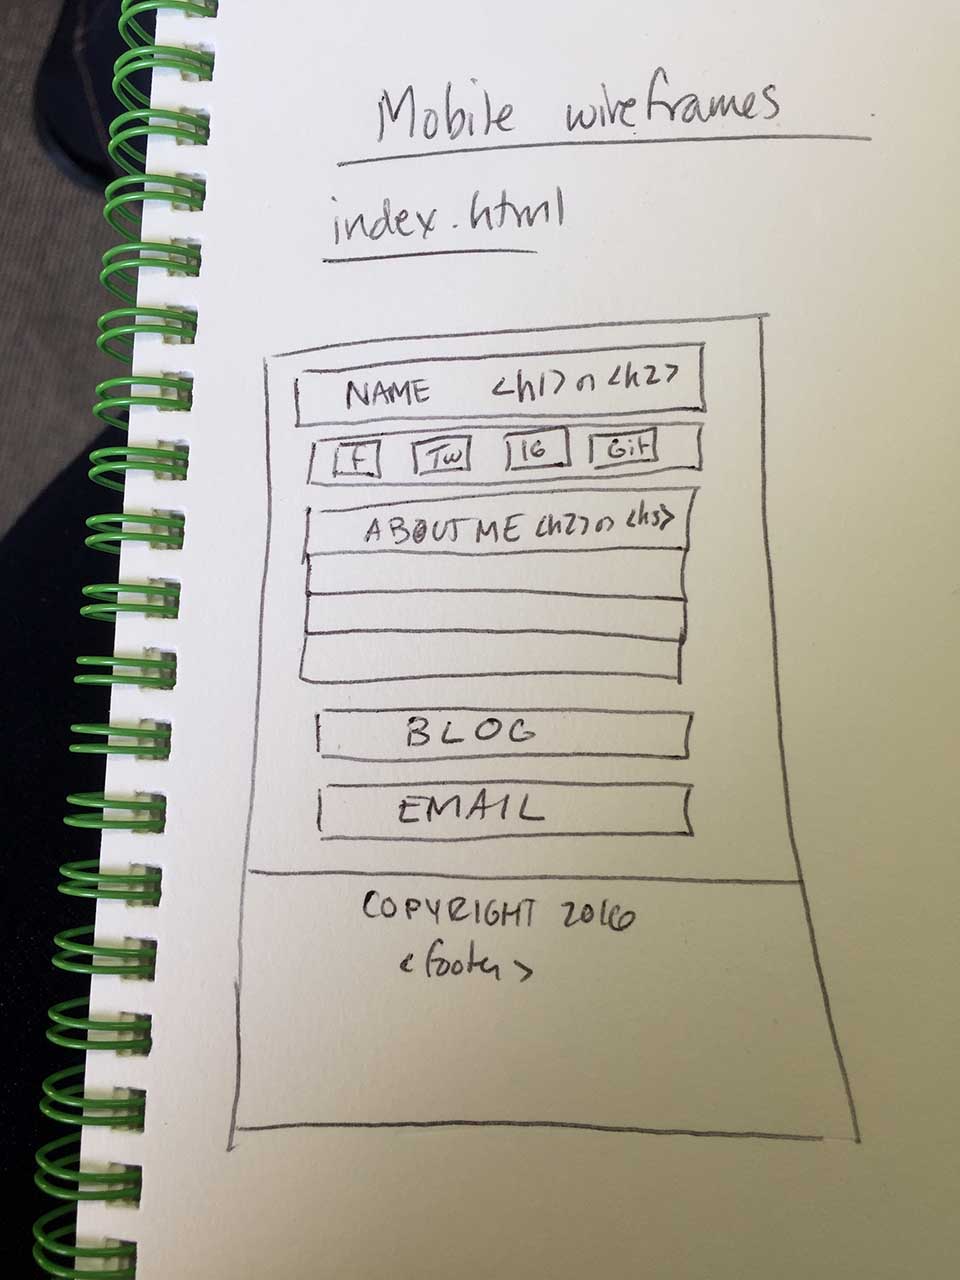 Mobile wireframes
index.html
NAME <h1> or <h2>
F Tw IG Git
ABOUT ME <h2> or <h3>
BLOG
EMAIL
COPYRIGHT 2016
<footer>